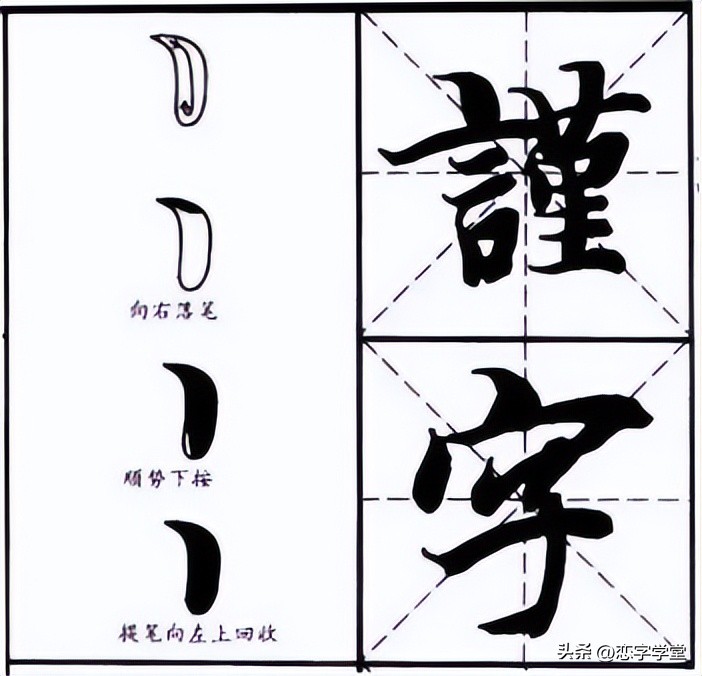 向右落笔
顺势下按
提笔向左上回收
謹
字
头条 @恋字学堂